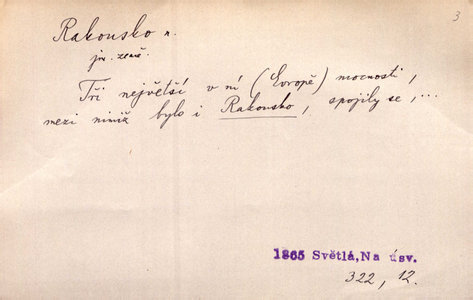 3
Rakousko n.
jm. země.
Tři největší v ní (Evropě) mocnosti,
mezi nimiž bylo i Rakousko, spojily se,...
1865 Světlá,Na úsv.
322, 12.